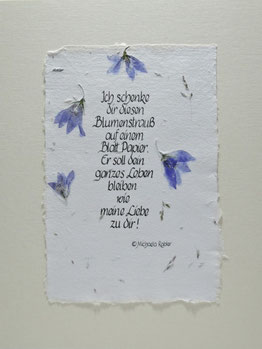 Ich schenke
dir diesen
Blumenstrauß
auf einem
Blatt Papier.
Er soll dein
ganzes Leben
bleiben
wie
meine Liebe
zu dir!
© Michaela